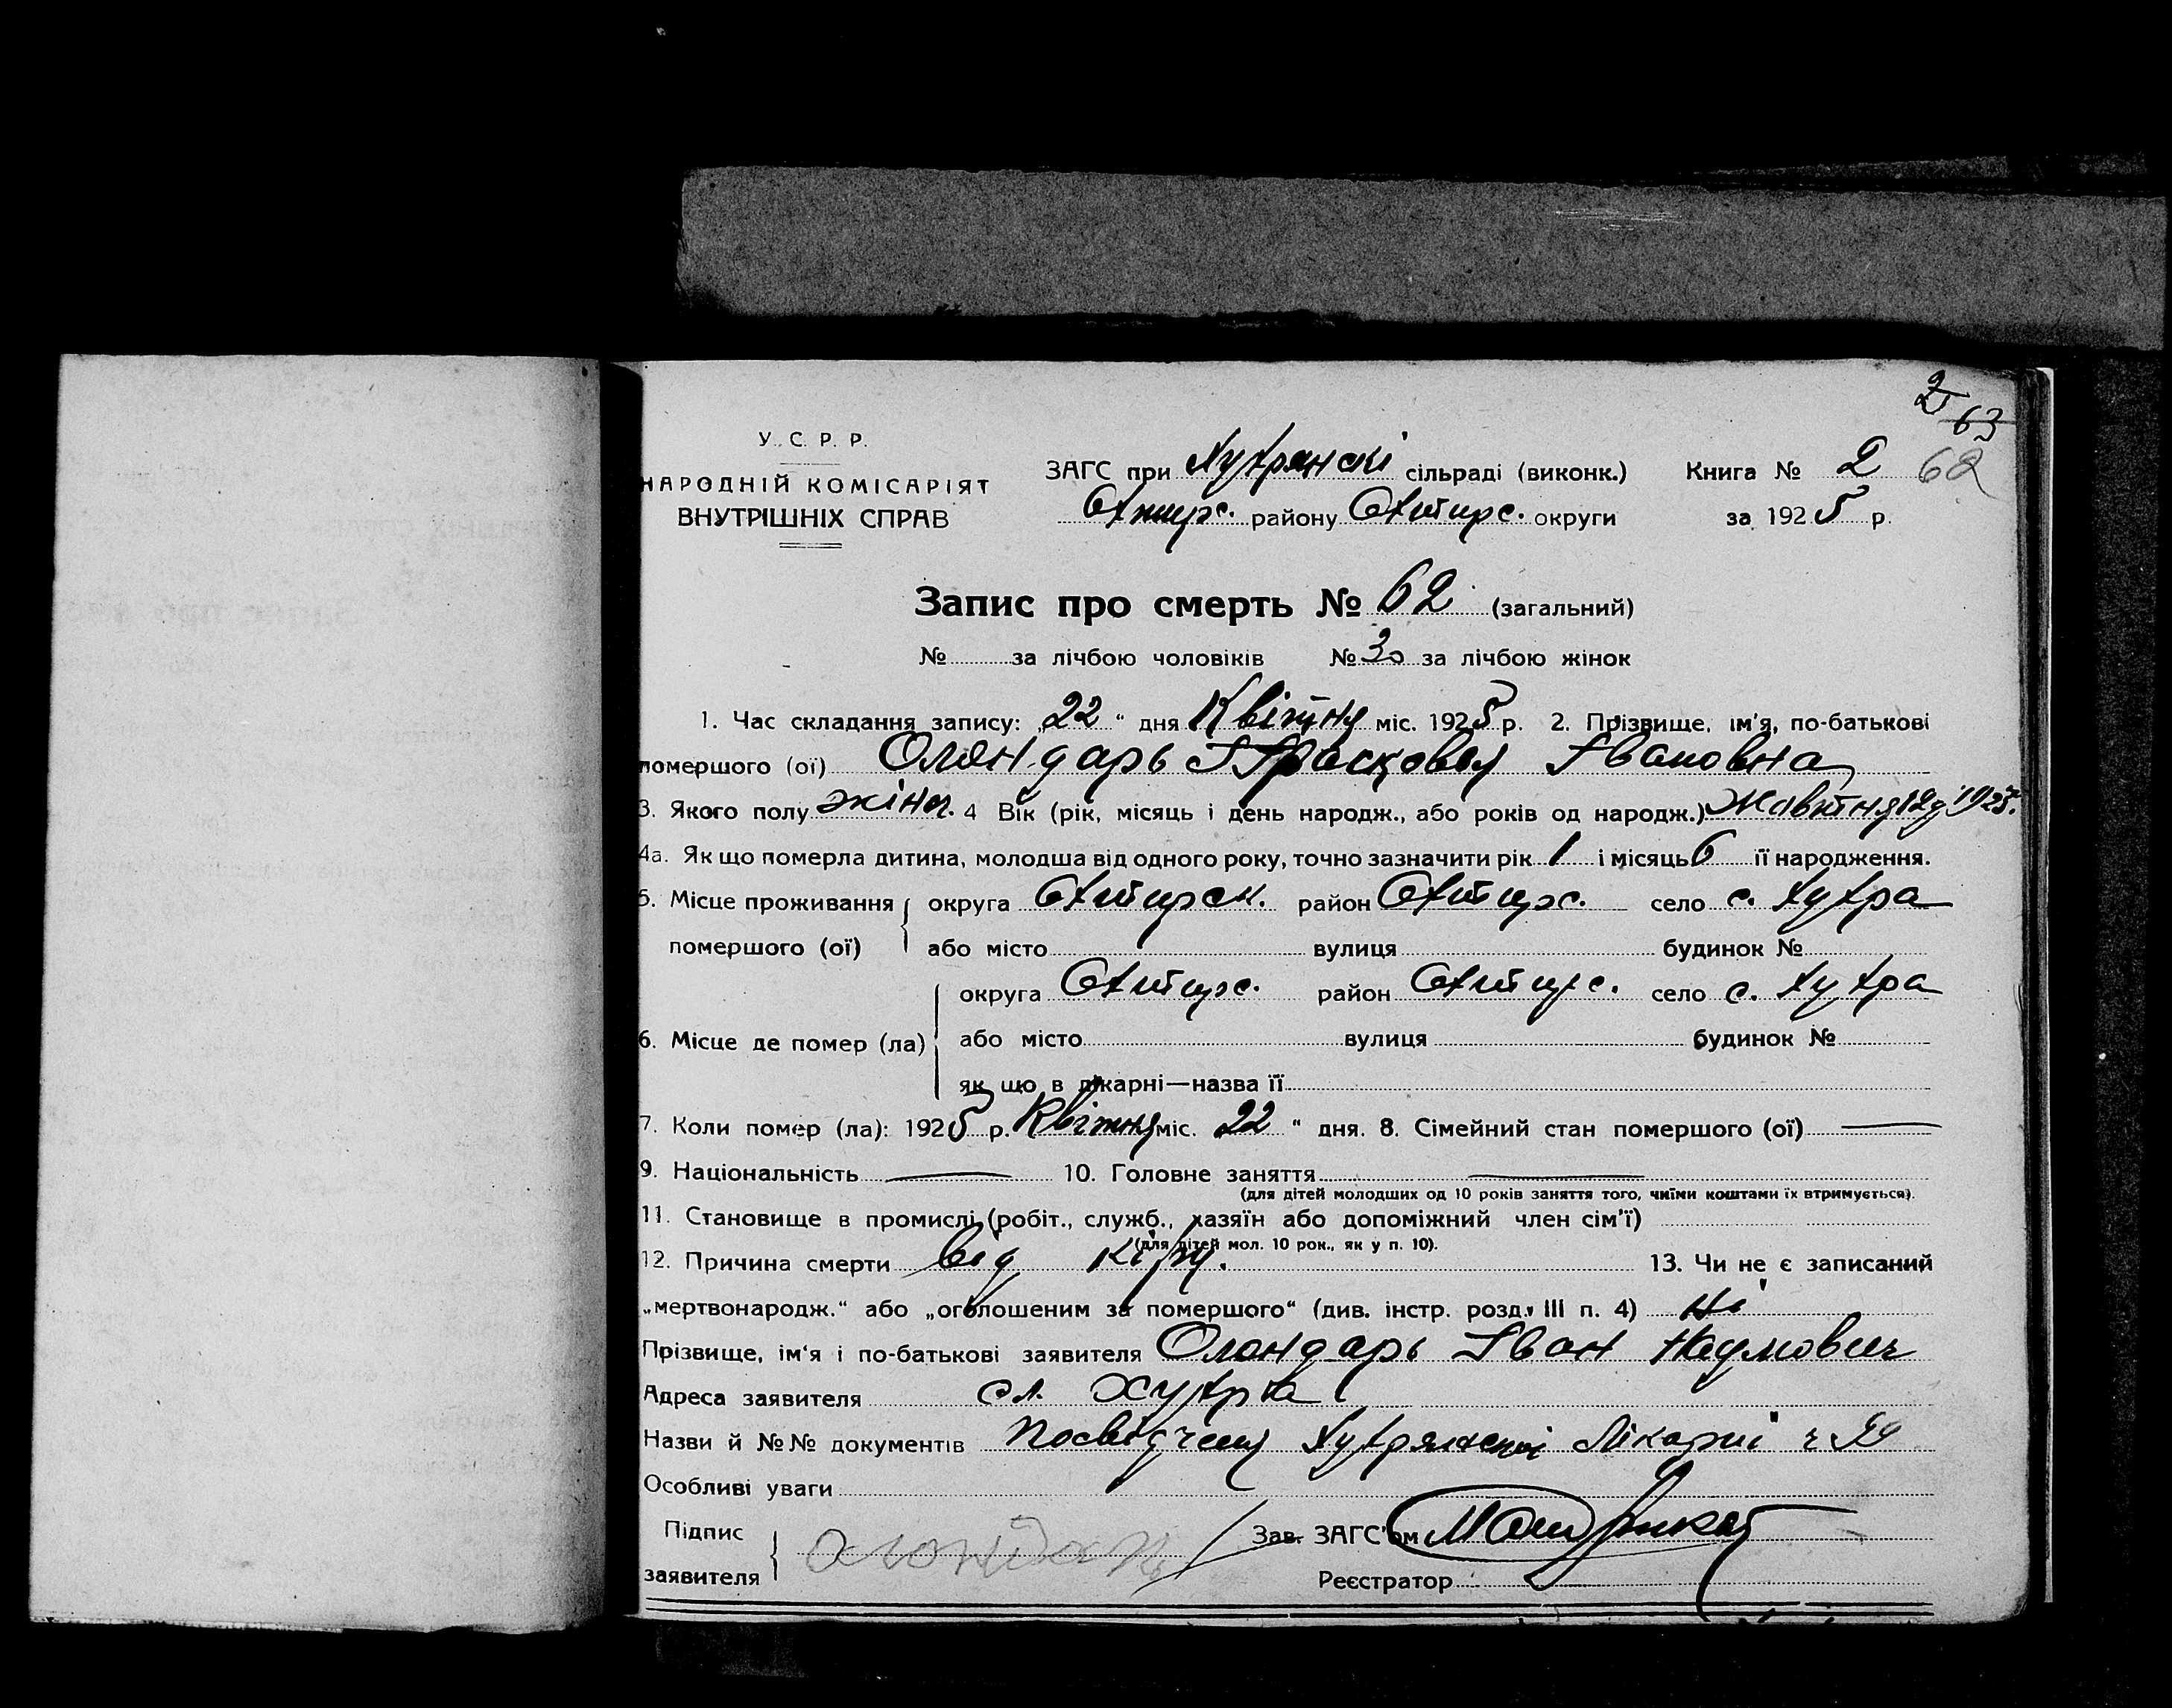 2
63
У. С. Р. Р.
НАРОДНІЙ КОМІСАРІЯТ
ВНУТРІШНІХ СПРАВ
ЗАГС при Хухрянскі сільраді (виконк.) Книга № 2 62
Охтирс. району Охтирс. округи за 1925 р.
Запис про смерть № 62 (загальний)
№ за лічбою чоловіків № 30 за лічбою жінок
1. Час складання запису: „22“ дня Квітня міс. 1925 р. 2. Прізвище, ім'я, по-батькові
помершого (ої) Олондарь Прасковья Івановна
3. Якого полу жіноч. 4 Вік (рік, місяць і день народж., або років од народж.) Жовтня 12д 1923.
4а. Як що померла дитина, молодша від одного року, точно зазначити рік 1 і місяць 6 її народження.
5. Місце проживання округа Охтирск. район Охтирс. село с. Хухра
помершого (ої) або місто вулиця будинок №
округа Охтирс. район Охтирс. село с. Хухра
6. Місце де помер (ла) або місто вулиця будинок №
як що в лікарні—назва її
7. Коли помер (ла): 1925 р. Квітня міс. 22 “ дня. 8. Сімейний стан помершого (ої) —
9. Національність — 10. Головне заняття —
(для дітей молодших од 10 років заняття того, чиїми коштами їх втримується).
11. Становище в промислі (робіт., служб., хазяїн або допоміжний член сім'ї)
(для дітей мол. 10 рок., як у п. 10).
12. Причина смерти від кіру. 13. Чи не є записаний
„мертвонародж.“ або „оголошеним за помершого“ (див. інстр. розд. III п. 4) Ні
Прізвище, ім'я і по-батькові заявителя Олондарь Іван Наумович
Адреса заявителя сл. Хухра
Назви й №№ документів Посвідченя Хухрянскої Лікарні ч
Особливі уваги
Підпис
заявителя
Олондарь
Зав. ЗАГС'ом
Реєстратор